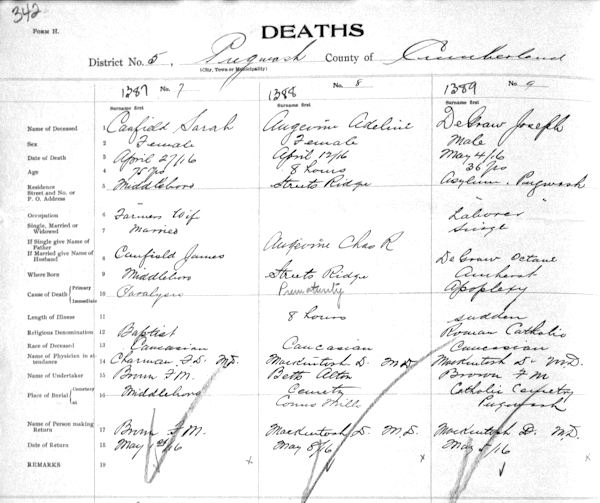 342
FORM H.
DEATHS
District No. 5, Pugwash County of Cumberland
(City, Town or Municipality)
1387 No. 7 1388 No. 8 1389 No. 9
Surname first Surname first Surname first
Name of Deceased 1 Canfield Sarah Angevine Adeline DeGraw Joseph
Sex 2 Female Female Male
Date of Death 3 April 27/16 April 12/16 May 4/16
Age 4 75 yrs 8 hours 36 yrs
Residence 5 Middleboro Streets Ridge Asylum, Pugwash
Street and No. or
P. O. Address
Occupation 6 Farmers Wife Laborer
Single, Married or 7 Married Single
Widowed
If Single give Name of Angevine Chas R
Father
If Married give Name of 8 Canfield James DeGraw Octave
Husband
Where Born 9 Middleboro Streets Ridge Amherst
Cause of Death Primary 10 Paralysis Prematurity Apoplexy
Immediate
Length of Illness 11 8 hours sudden
Religious Denomination 12 Baptist Roman Catholic
Race of Deceased 13 Caucasian Caucasian Caucasian
Name of Physician in at- 14 Charman F. D. MD. Mackintosh D. MD Mackintosh D. MD.
tendance
Name of Undertaker 15 Brown F M. Betts Alton Brown F M
Place of Burial Cemetery 16 Middleboro Cemetry Catholic Cemetry
at Conns Mills Pugwash
Name of Person making 17 Brown F M. Mackintosh D. M.D. Mackintosh D. MD.
Return
Date of Return 18 May /16 May 8/16 May 5/16
REMARKS 19 x x x